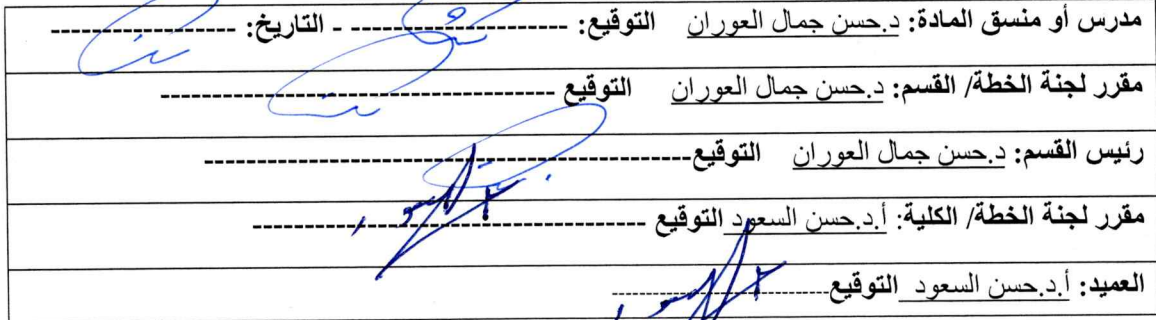 مدرس أو منسق المادة: د.حسن جمال العوران التوقيع: ----------------------- - التاريخ: --------------------
مقرر لجنة الخطة/ القسم: د.حسن جمال العوران التوقيع -----------------------------
رئيس القسم: د.حسن جمال العوران التوقيع--------------------------------------------------
مقرر لجنة الخطة/ الكلية: أ.د.حسن السعود التوقيع ----------------------------------------
العميد: أ.د.حسن السعود التوقيع-----------------------